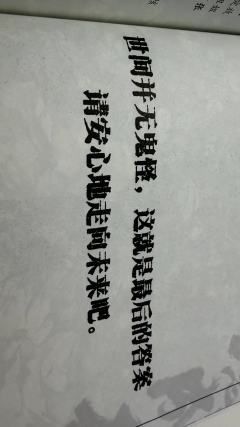 世间并无鬼怪，这就是最后的答案
请安心地走向未来吧。